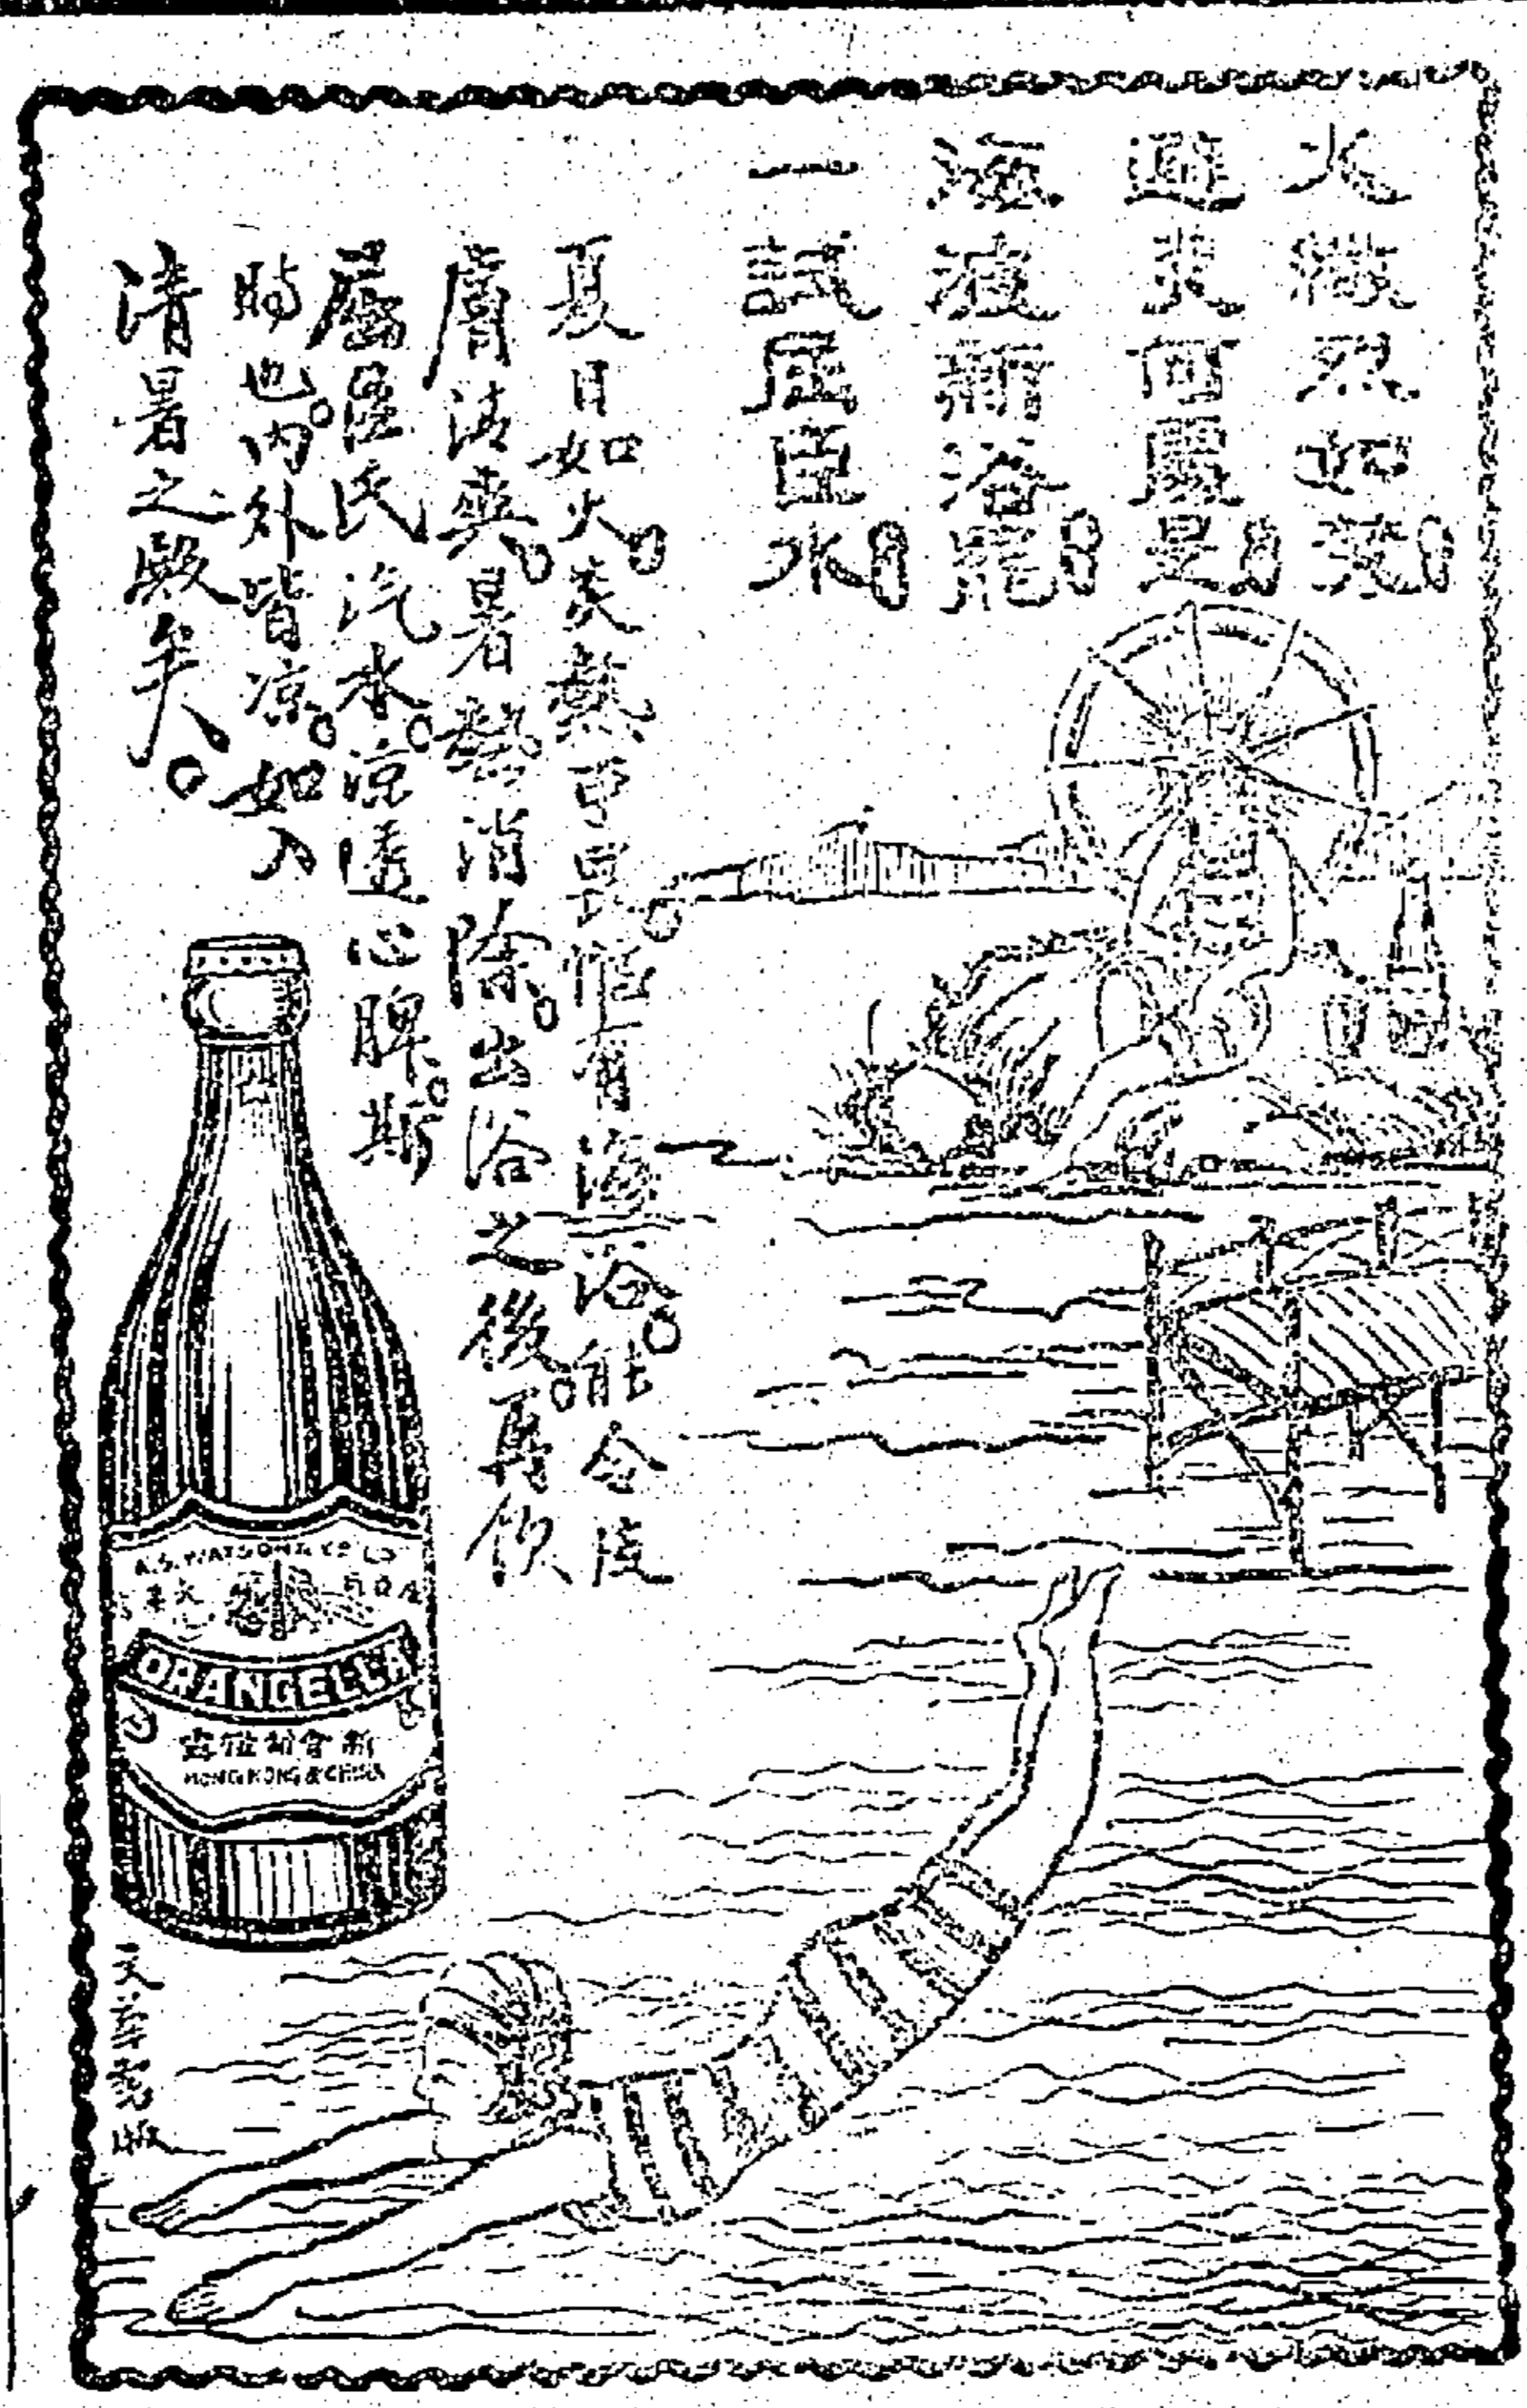 火繖如焚
避何處是
海波新浴罷
一試屈臣水
夏日如火。炎熱可畏。惟有海浴。能令皮
膚清爽。暑熱消除。出浴之後。再飲
屈臣氏汽水。涼透心脾。斯
時也。內外皆涼。如入
清暑之殿矣。
A.S. WATSON & CO LD
ORANGELLA
新會甜橙露
HONG KONG & CHINA